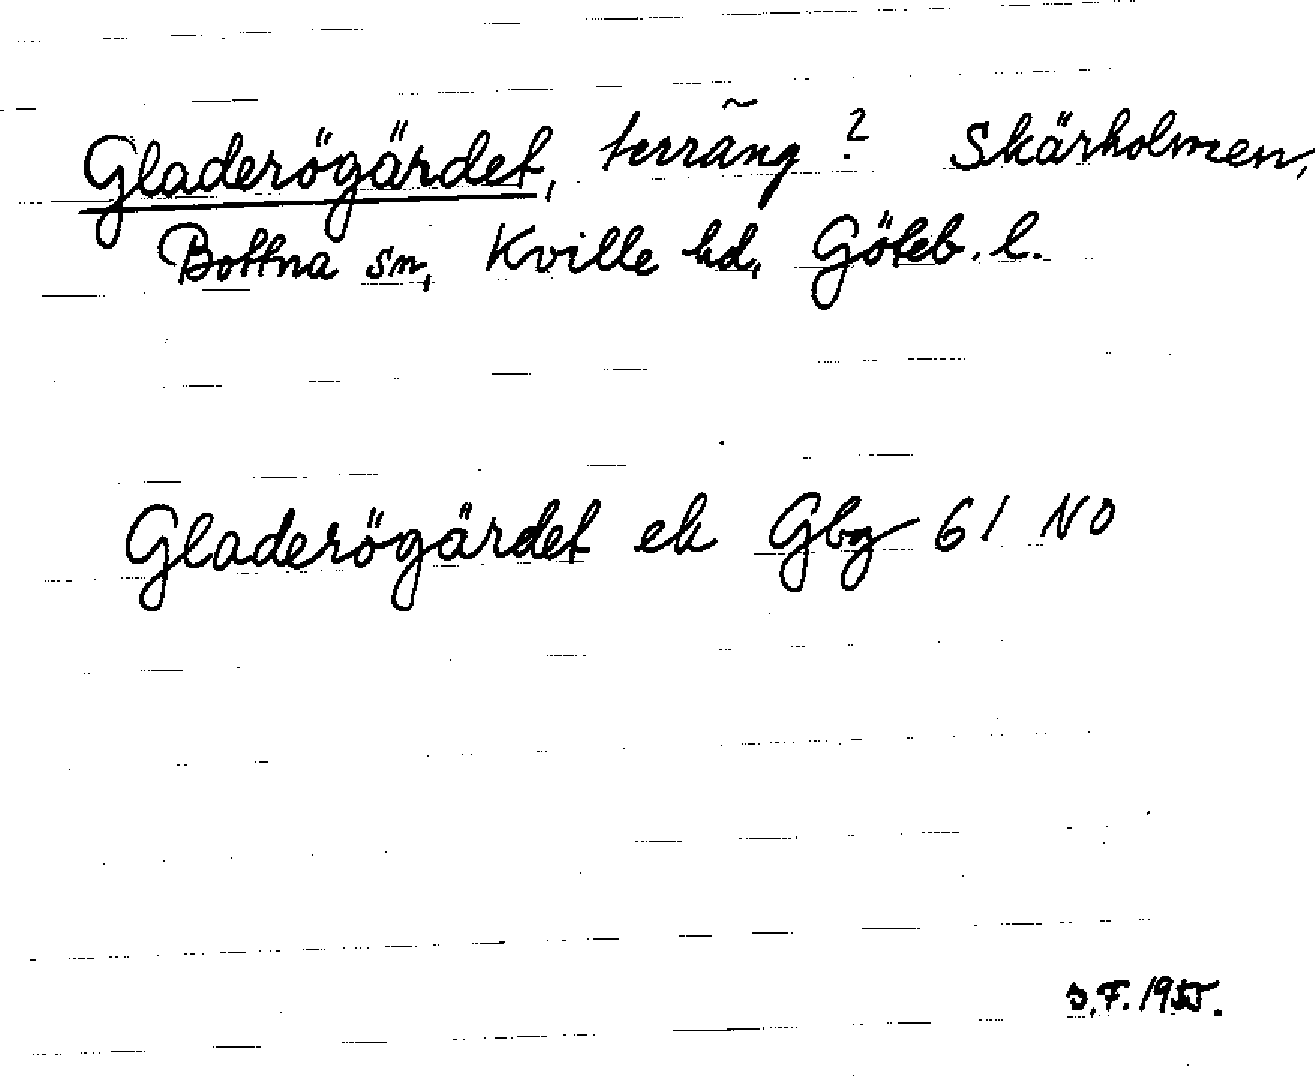 Gladerögärdet, terräng? Skärholmen,
Bottna sn, Kville hd, Göteb. l.
Gladerögärdet ek Gbg 61 NO
J.F. 1955.